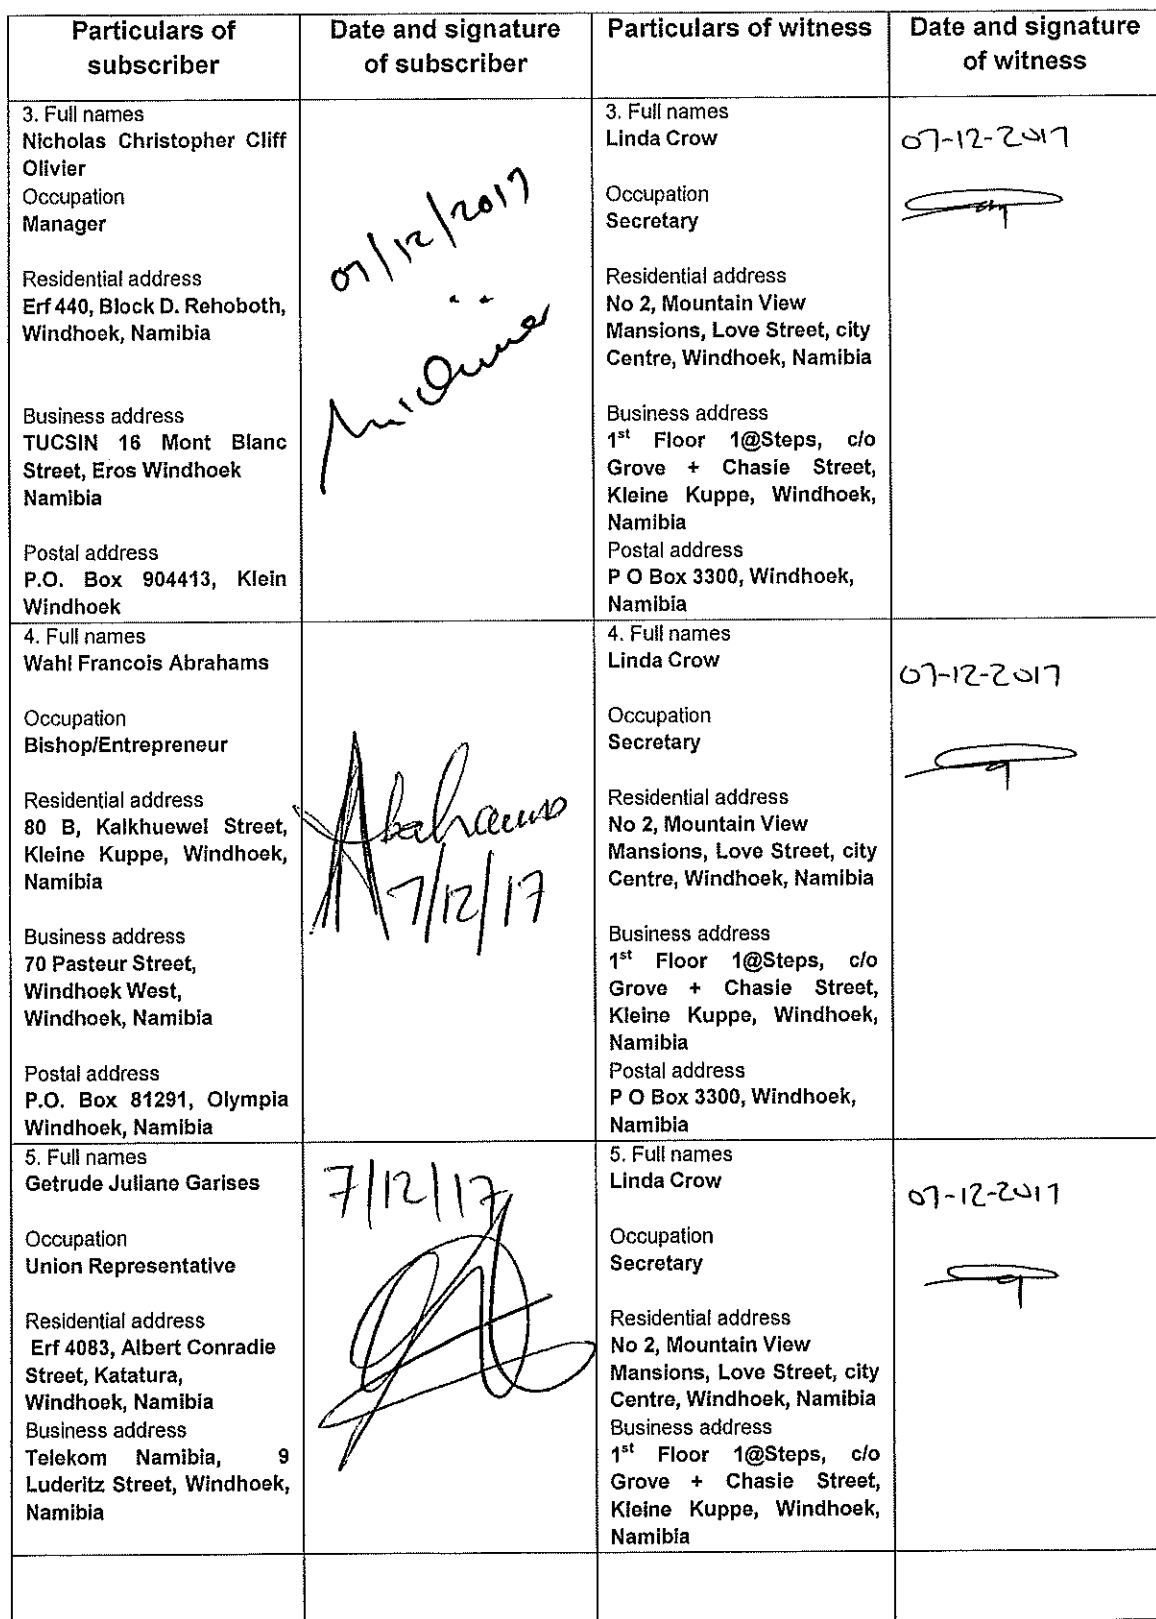 Particulars of
subscriber
Date and signature
of subscriber
Particulars of witness
Date and signature
of witness
3. Full names
Nicholas Christopher Cliff
Olivier
Occupation
Manager
Residential address
Erf 440, Block D. Rehoboth,
Windhoek, Namibia
Business address
TUCSIN 16 Mont Blanc
Street, Eros Windhoek
Namibia
Postal address
P.O. Box 904413, Klein
Windhoek
07/12/2017
3. Full names
Linda Crow
Occupation
Secretary
Residential address
No 2, Mountain View
Mansions, Love Street, city
Centre, Windhoek, Namibia
Business address
1st Floor 1@Steps, c/o
Grove + Chasie Street,
Kleine Kuppe, Windhoek,
Namibia
Postal address
P O Box 3300, Windhoek,
Namibia
07-12-2017
4. Full names
Wahl Francois Abrahams
Occupation
Bishop/Entrepreneur
Residential address
80 B, Kalkhuewel Street,
Kleine Kuppe, Windhoek,
Namibia
Business address
70 Pasteur Street,
Windhoek West,
Windhoek, Namibia
Postal address
P.O. Box 81291, Olympia
Windhoek, Namibia
Abrahams
7/12/17
4. Full names
Linda Crow
Occupation
Secretary
Residential address
No 2, Mountain View
Mansions, Love Street, city
Centre, Windhoek, Namibia
Business address
1st Floor 1@Steps, c/o
Grove + Chasie Street,
Kleine Kuppe, Windhoek,
Namibia
Postal address
P O Box 3300, Windhoek,
Namibia
07-12-2017
5. Full names
Getrude Juliane Garises
Occupation
Union Representative
Residential address
Erf 4083, Albert Conradie
Street, Katatura,
Windhoek, Namibia
Business address
Telekom Namibia, 9
Luderitz Street, Windhoek,
Namibia
7/12/17
5. Full names
Linda Crow
Occupation
Secretary
Residential address
No 2, Mountain View
Mansions, Love Street, city
Centre, Windhoek, Namibia
Business address
1st Floor 1@Steps, c/o
Grove + Chasie Street,
Kleine Kuppe, Windhoek,
Namibia
07-12-2017